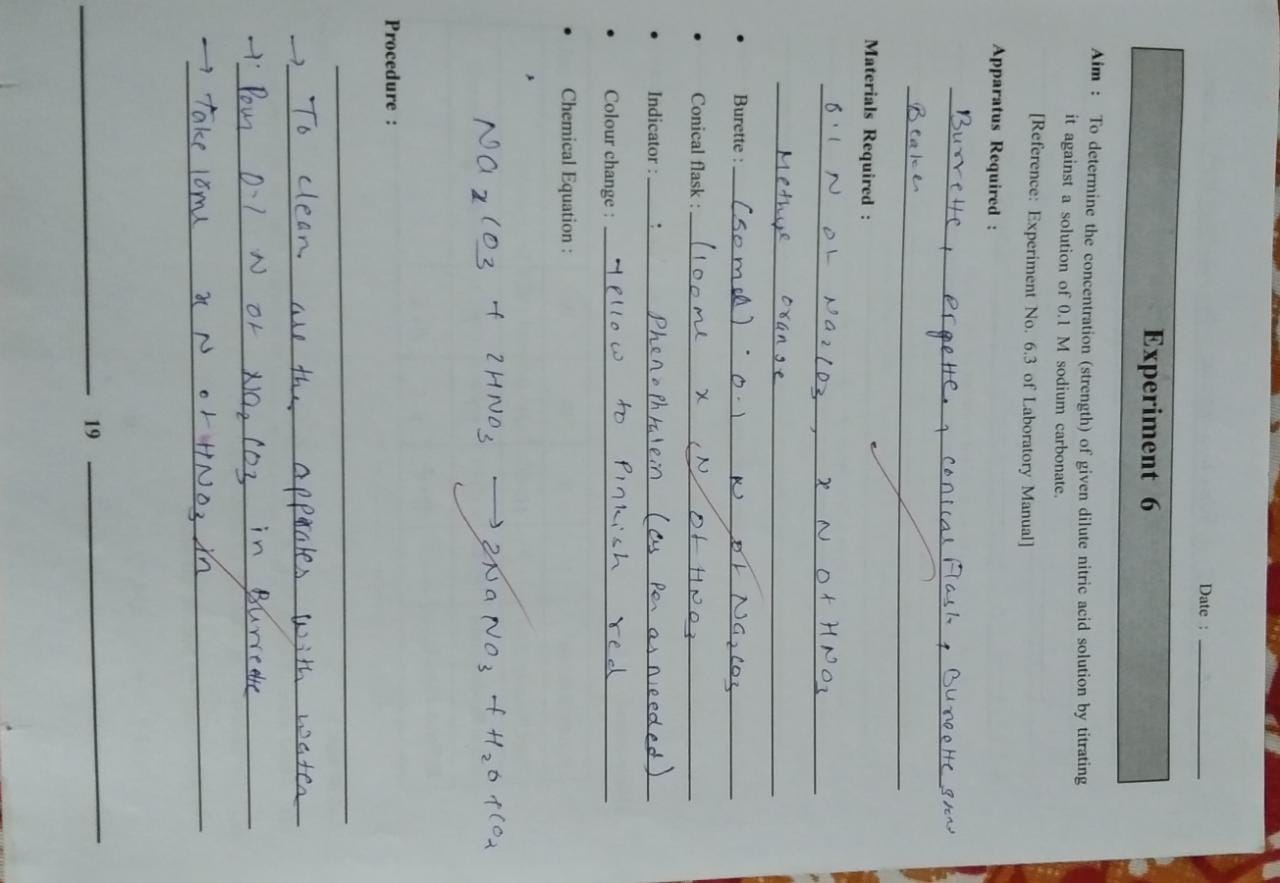 Date :
Experiment 6
Aim : To determine the concentration (strength) of given dilute nitric acid solution by titrating
it against a solution of 0.1 M sodium carbonate.
[Reference: Experiment No. 6.3 of Laboratory Manual]
Apparatus Required :
Burrette, pipette, conical Flask, Burette
Beaker
Materials Required :
0.1 N of Na2CO3, x N of HNO3
Methyl orange
• Burette : (50ml) 0.1 N of Na2CO3
• Conical flask : (100ml x N of HNO3
• Indicator : : Phenophtalein (as per as nieeded)
• Colour change : Yellow to Pinkish red
• Chemical Equation :
Na2CO3 + 2HNO3 → 2NaNO3 + H2O + CO2
Procedure :
→ To clean all the apprates with water
→ Pour 0.1 N of Na2CO3 in Burrette
→ Take 10ml x N of HNO3 in
19